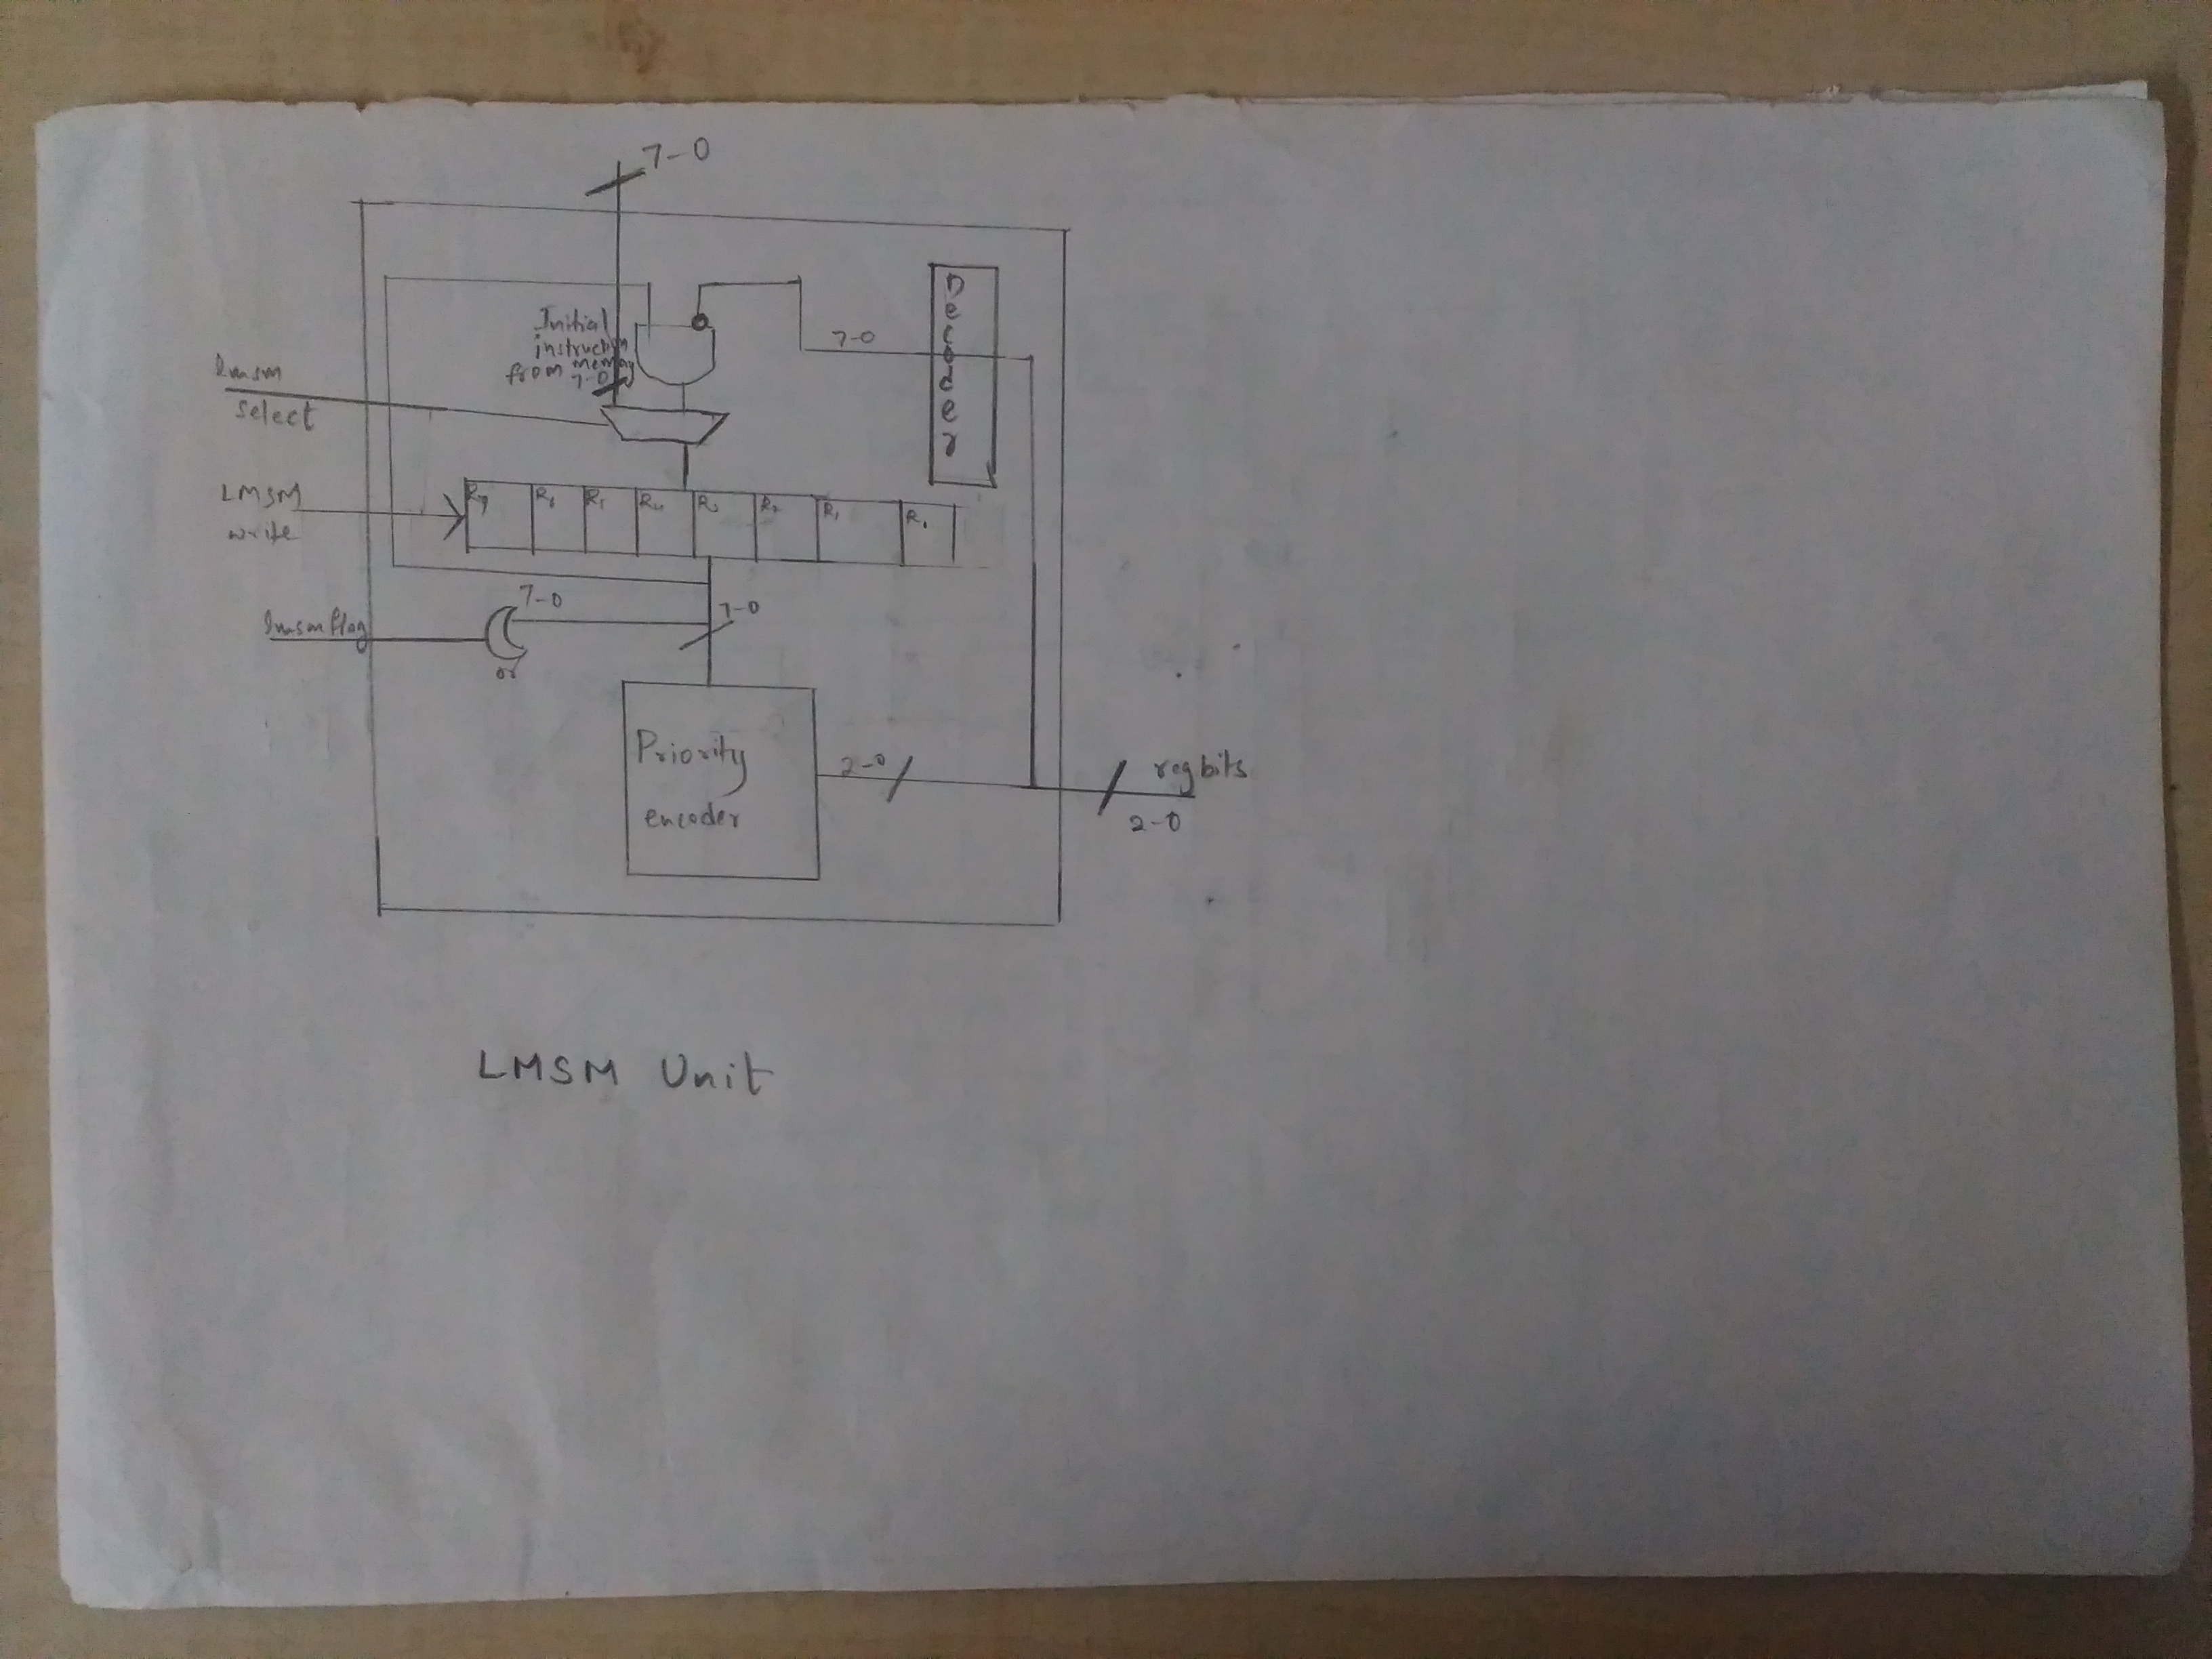 7-0
Initial
instruction
from memory
7-0
Decoder
7-0
lmsm
select
LMSM
write
R7
R6
R5
R4
R3
R2
R1
7-0
7-0
lmsm flag
or
Priority
encoder
2-0
reg bits
2-0
LMSM Unit